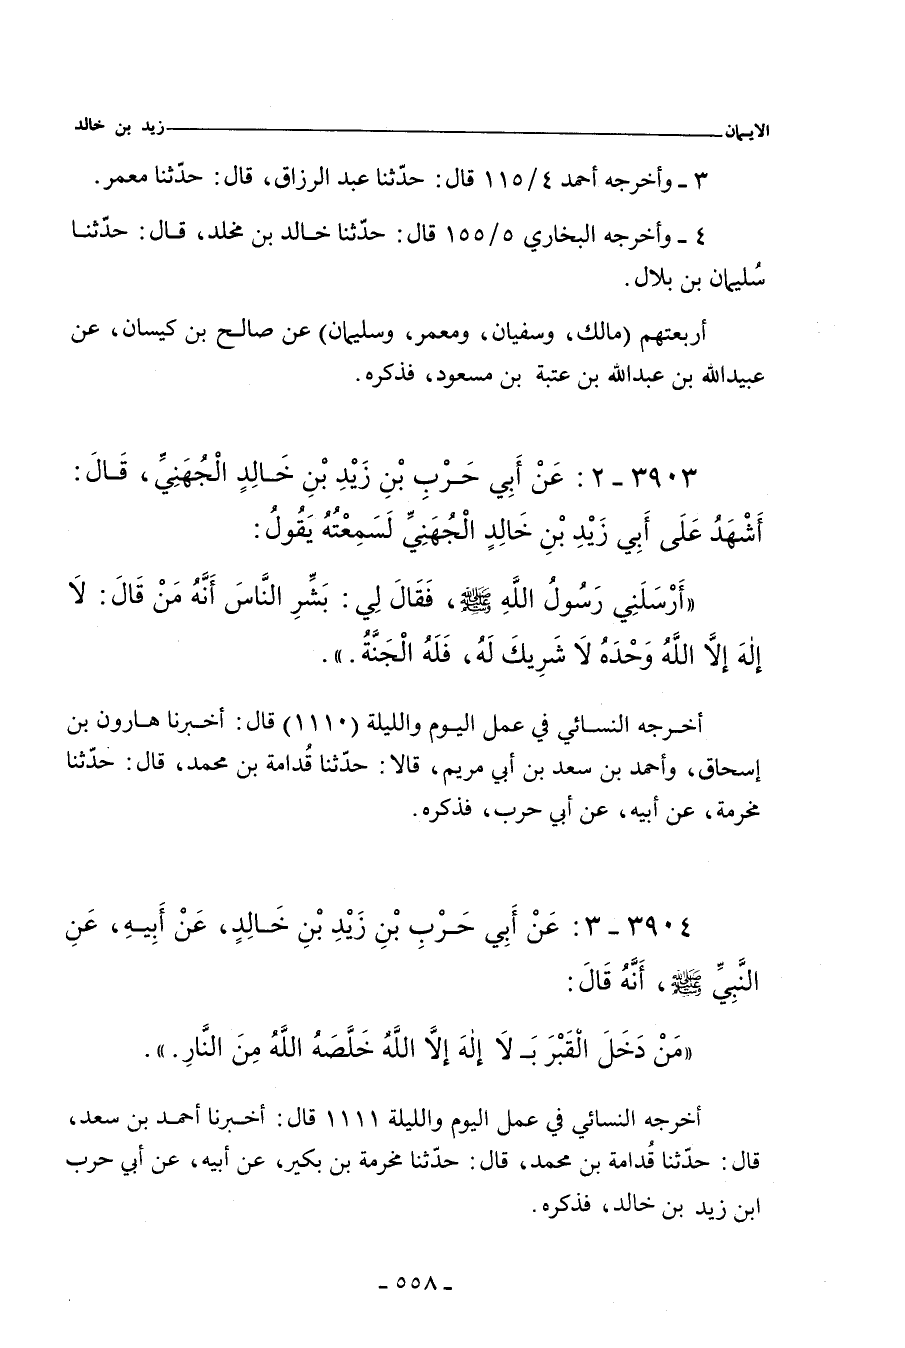 الايمان ــــــــــــــــ زيد بن خالد
٣ ـ وأخرجه أحمد ١١٥/٤ قال: حدّثنا عبد الرزاق، قال: حدّثنا معمر.
٤ ـ وأخرجه البخاري ١٥٥/٥ قال: حدّثنا خالد بن مخلد، قال: حدّثنا
سُليمان بن بلال.
أربعتهم (مالك، وسفيان، ومعمر، وسليمان) عن صالح بن كيسان، عن
عبيدالله بن عبدالله بن عتبة بن مسعود، فذكره.
٣٩٠٣ ـ ٢: عَنْ أَبِي حَرْبِ بْنِ زَيْدِ بْنِ خَالِدٍ الْجُهَنِيِّ، قَالَ:
أَشْهَدُ عَلَى أَبِي زَيْدِ بْنِ خَالِدٍ الْجُهَنِيِّ لَسَمِعْتُهُ يَقُولُ:
«أَرْسَلَنِي رَسُولُ اللَّهِ ﷺ، فَقَالَ لِي: بَشِّرِ النَّاسَ أَنَّهُ مَنْ قَالَ: لَا
إِلٰهَ إِلَّا اللَّهُ وَحْدَهُ لَا شَرِيكَ لَهُ، فَلَهُ الْجَنَّةُ.».
أخرجه النسائي في عمل اليوم والليلة (١١١٠) قال: أخبرنا هارون بن
إسحاق، وأحمد بن سعد بن أبي مريم، قالا: حدّثنا قُدامة بن محمد، قال: حدّثنا
مخرمة، عن أبيه، عن أبي حرب، فذكره.
٣٩٠٤ ـ ٣: عَنْ أَبِي حَرْبِ بْنِ زَيْدِ بْنِ خَالِدٍ، عَنْ أَبِيهِ، عَنِ
النَّبِيِّ ﷺ، أَنَّهُ قَالَ:
«مَنْ دَخَلَ الْقَبْرَ بَـ لَا إِلٰهَ إِلَّا اللَّهُ خَلَّصَهُ اللَّهُ مِنَ النَّارِ.».
أخرجه النسائي في عمل اليوم والليلة ١١١١ قال: أخبرنا أحمد بن سعد،
قال: حدّثنا قُدامة بن محمد، قال: حدّثنا مخرمة بن بكير، عن أبيه، عن أبي حرب
ابن زيد بن خالد، فذكره.
ـ ٥٥٨ ـ